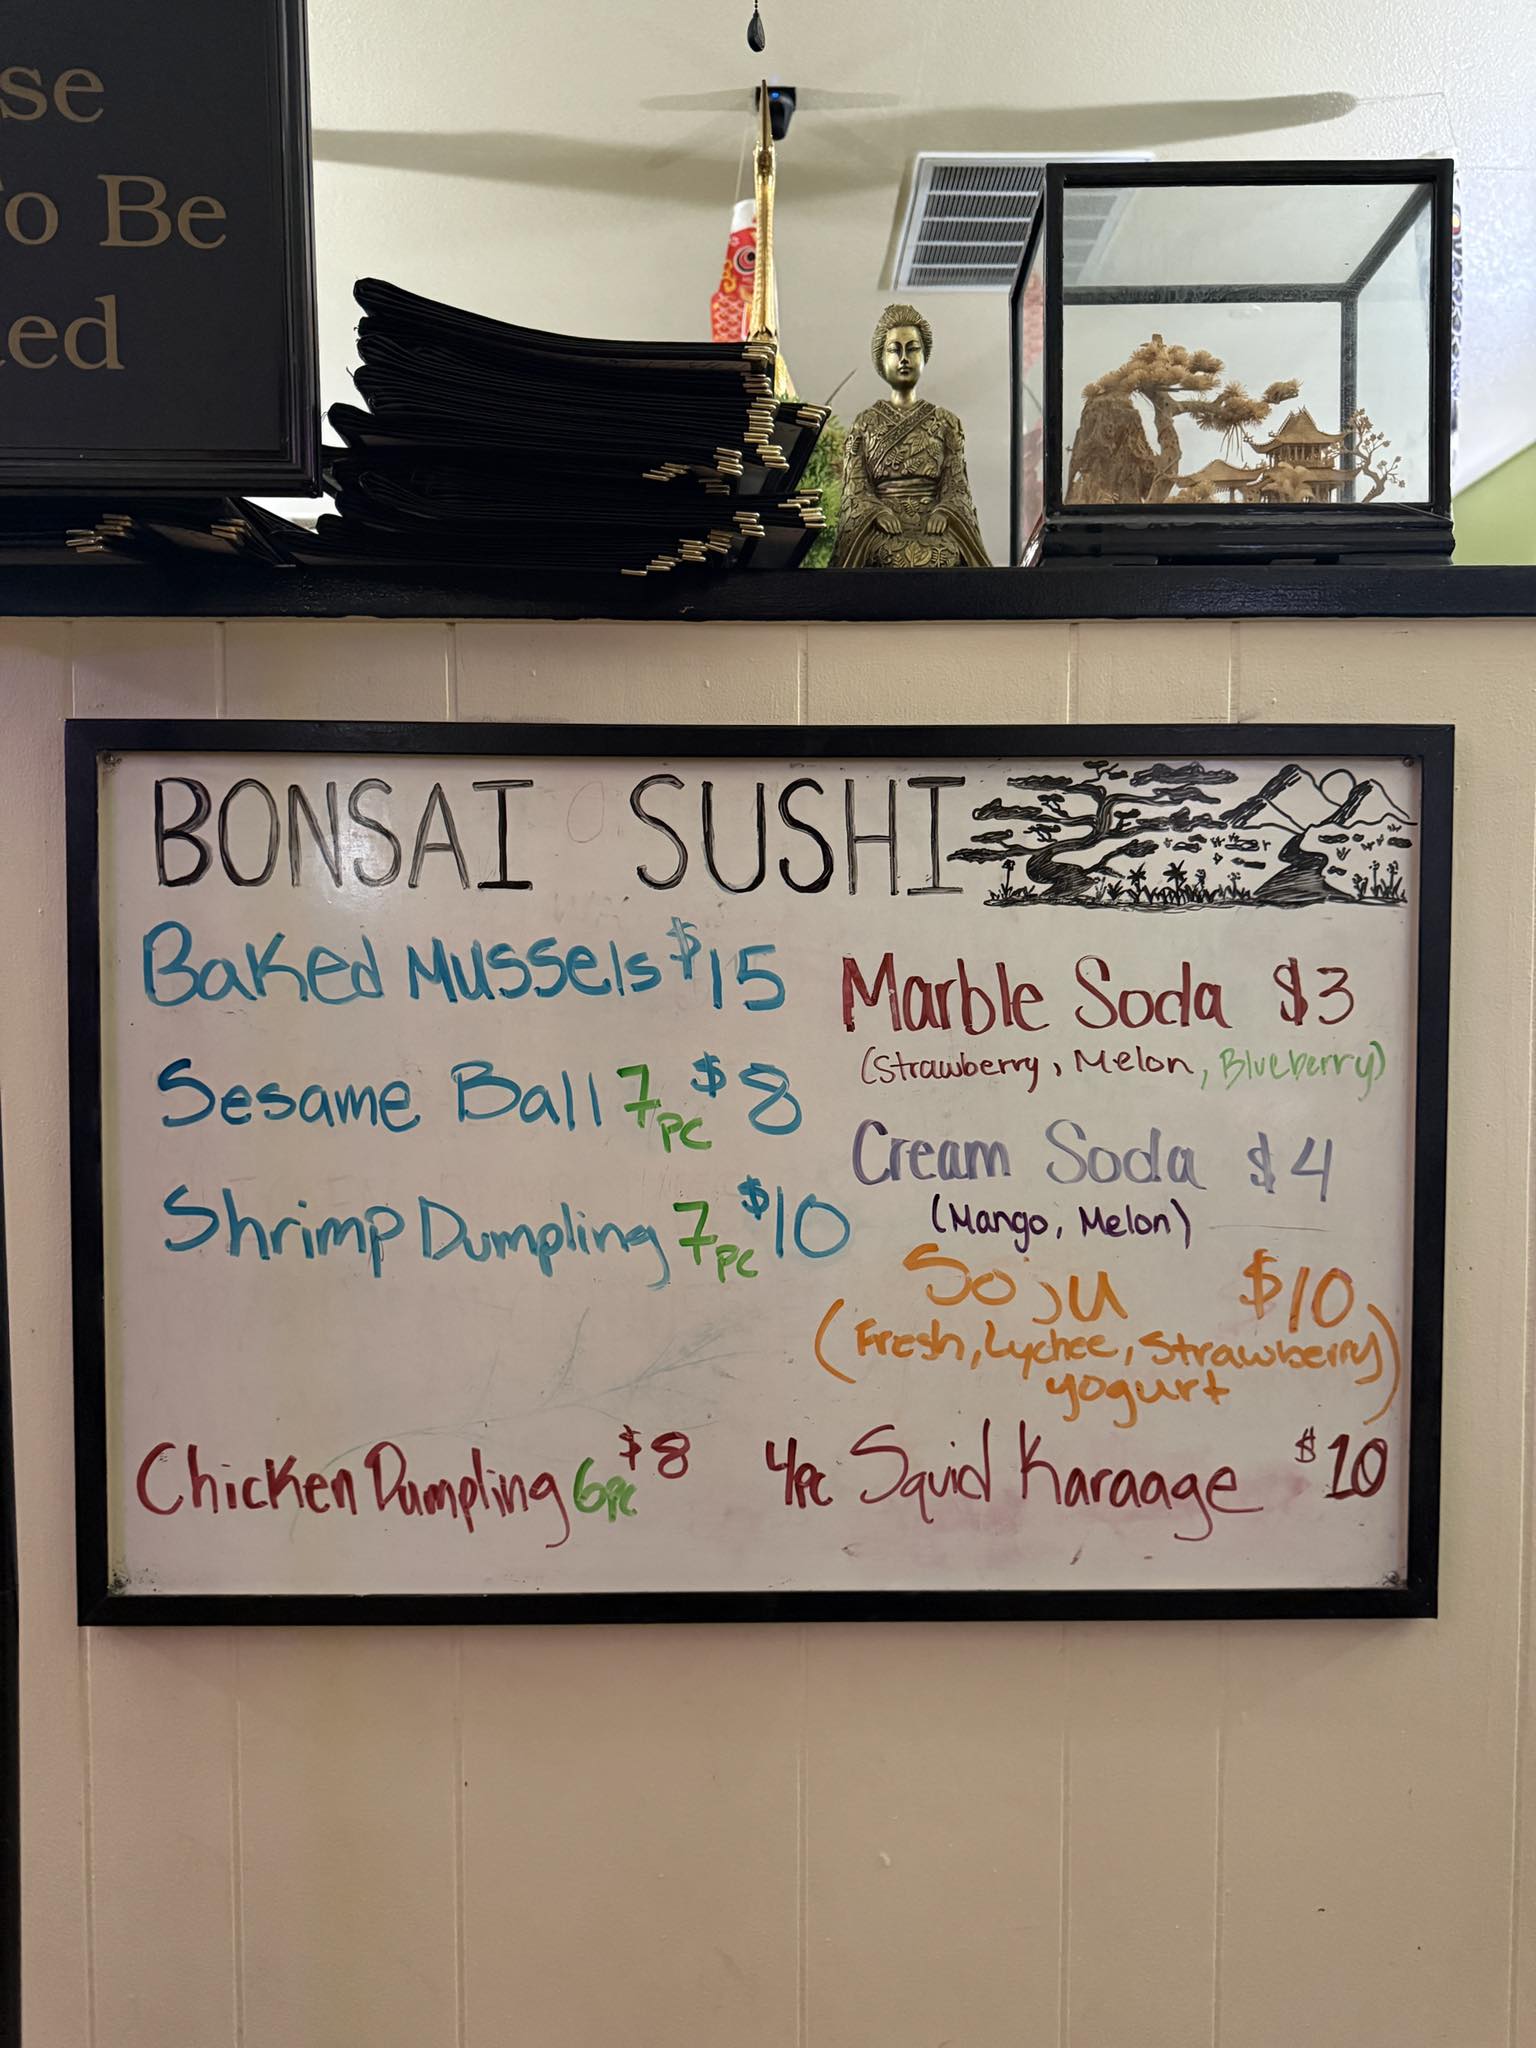 se
To Be
ed
BONSAI SUSHI
Baked Mussels $15
Sesame Ball 7pc $8
Shrimp Dumpling 7pc $10
Chicken Dumpling 6pc $8
Marble Soda $3
(Strawberry, Melon, Blueberry)
Cream Soda $4
(Mango, Melon)
Soju $10
(Fresh, Lychee, Strawberry)
yogurt
4pc Squid Karaage $10